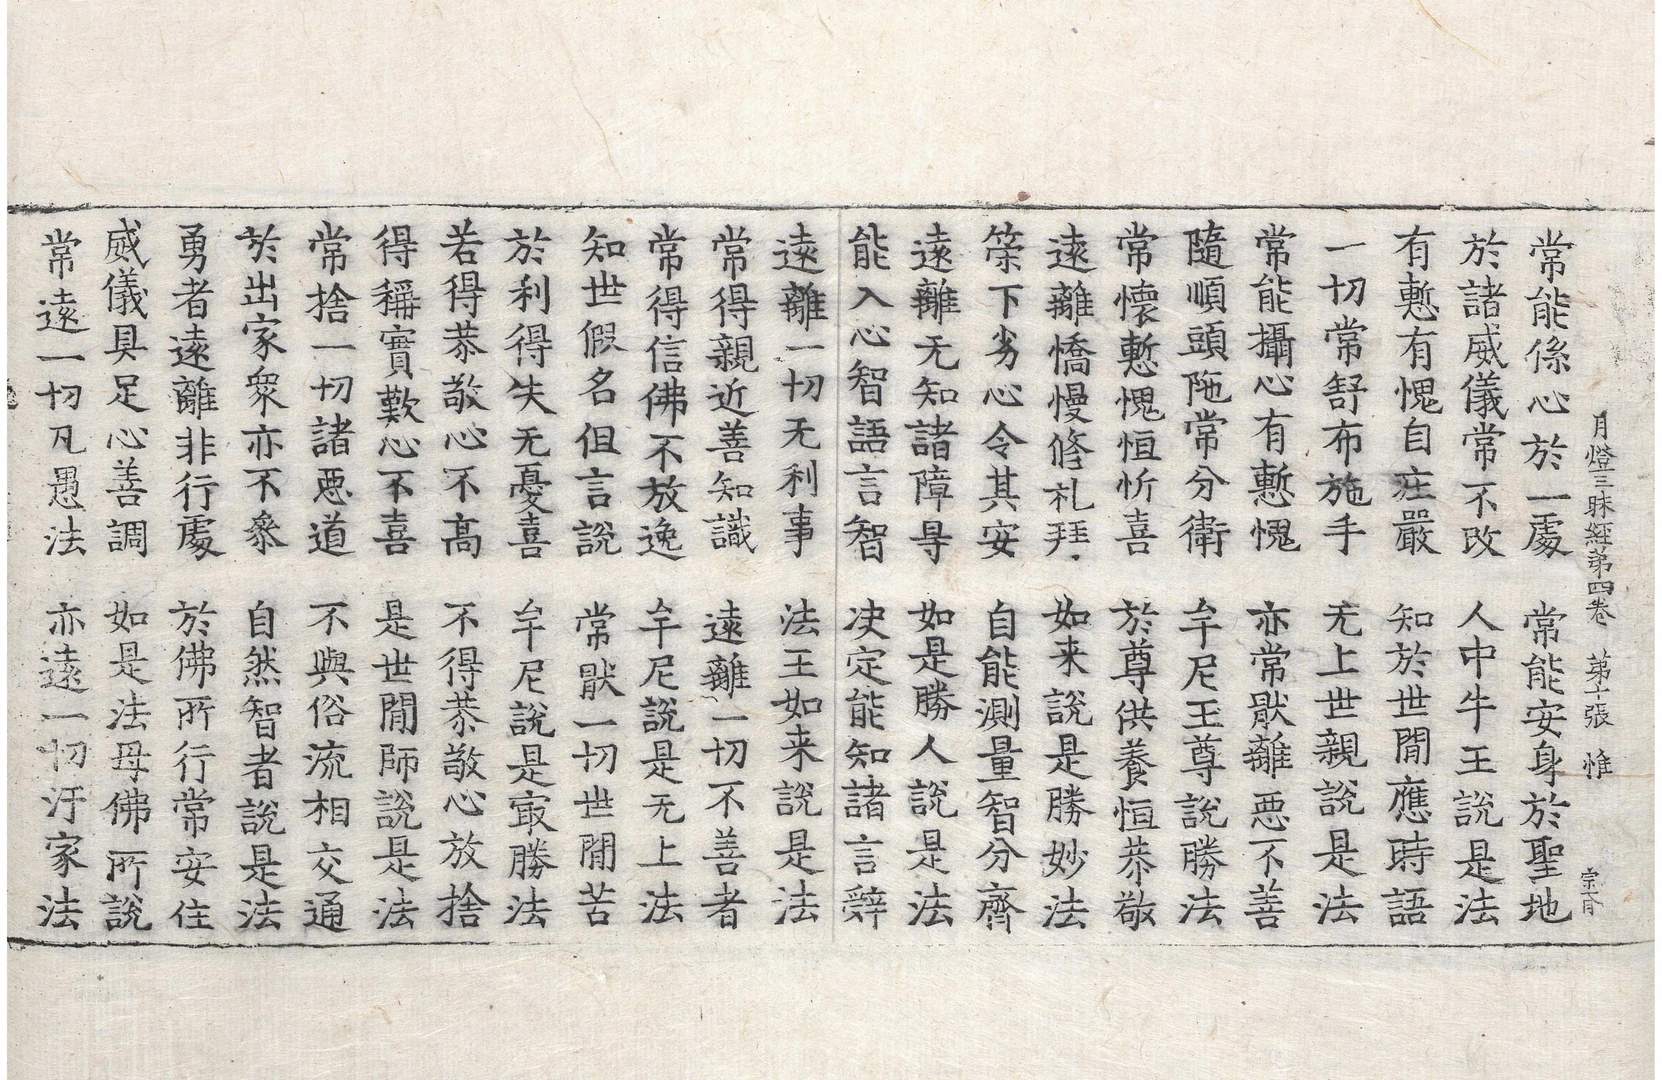 月燈三昧経第四卷 第十張 惟 宗百
常能係心於一處 常能安身於聖地
於諸威儀常不改 人中牛王說是法
有慙有愧自庄嚴 知於世閒應時語
一切常舒布施手 无上世親說是法
常能攝心有慙愧 亦常猒離惡不善
隨順頭陁常分衛 牟尼王尊說勝法
常懷慙愧恒忻喜 於尊供養恒恭敬
遠離憍慢修礼拜 如来說是勝妙法
策下劣心令其安 自能測量智分齊
遠離无知諸障㝵 如是勝人說是法
能入心智語言智 决定能知諸言辝
遠離一切无利事 法王如来說是法
常得親近善知識 遠離一切不善者
常得信佛不放逸 牟尼說是无上法
知世假名但言說 常猒一切世閒苦
於利得失无憂喜 牟尼說是㝡勝法
若得恭敬心不高 不得恭敬心放捨
得稱實歎心不喜 是世閒師說是法
常捨一切諸惡道 不與俗流相交通
於出家衆亦不叅 自然智者說是法
勇者遠離非行處 於佛所行常安住
威儀具足心善調 如是法母佛所說
常遠一切凡愚法 亦遠一切汙家法